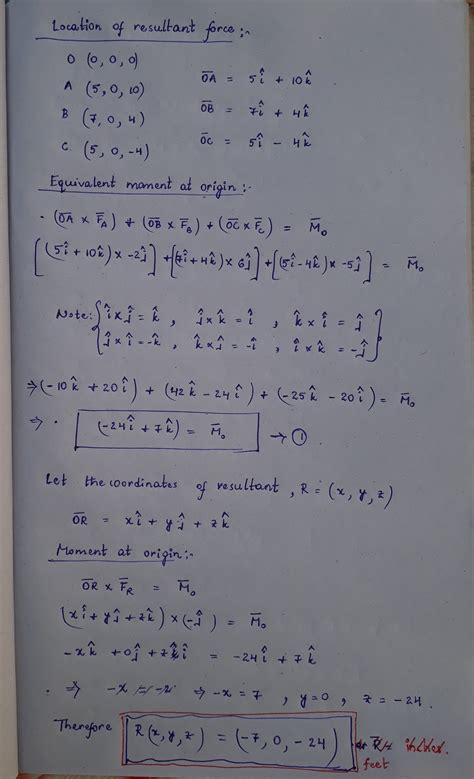 Location of resultant force :-
O (0, 0, 0)
A (5, 0, 10) O̅A̅ = 5î + 10k̂
B (7, 0, 4) O̅B̅ = 7î + 4k̂
C. (5, 0, -4) O̅C̅ = 5î - 4k̂
Equivalent moment at origin :-
· (O̅A̅ × F̅_A) + (O̅B̅ × F̅_B) + (O̅C̅ × F̅_C) = M̅₀
[(5î + 10k̂) × -2ĵ] + [(7î + 4k̂) × 6ĵ] + [(5î - 4k̂) × -5ĵ] = M̅₀
Note: { î × ĵ = k̂ , ĵ × k̂ = î , k̂ × î = ĵ
ĵ × î = -k̂ , k̂ × ĵ = -î , î × k̂ = -ĵ }
⇒ (-10k̂ + 20î) + (42k̂ - 24î) + (-25k̂ - 20î) = M̅₀
⇒ · (-24î + 7k̂) = M̅₀ → ①
Let the coordinates of resultant , R = (x, y, z)
O̅R̅ = xî + yĵ + zk̂
Moment at origin :-
O̅R̅ × F̅_R = M̅₀
(xî + yĵ + zk̂) × (-ĵ) = M̅₀
-xk̂ + 0ĵ + zî = -24î + 7k̂
· ⇒ ⇒ -x = 7 , y = 0 , z = -24
Therefore R(x, y, z) = (-7, 0, -24)
feet